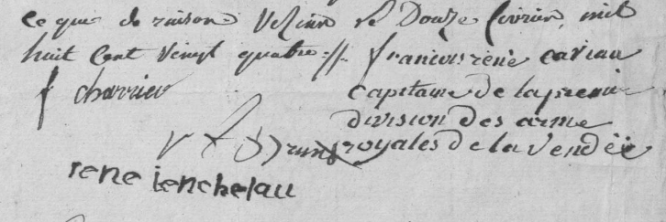 ce que de raison Velin le Douze fevrier mil
huit Cent Veingt quatre francois rené caviau
f charrier capitaine de la premie
division des arme
royales de la vendée
rene